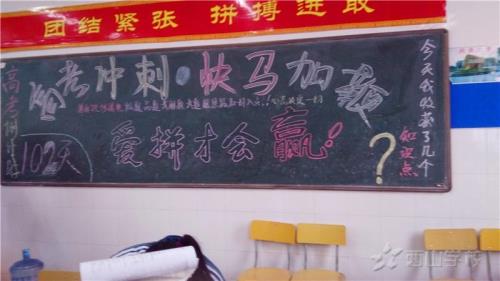 团结紧张 拼搏进取
高考冲刺·快马加鞭
爱拼才会赢!
高考倒计时
102天
今天我收获了几个
知识点
?
西山学校